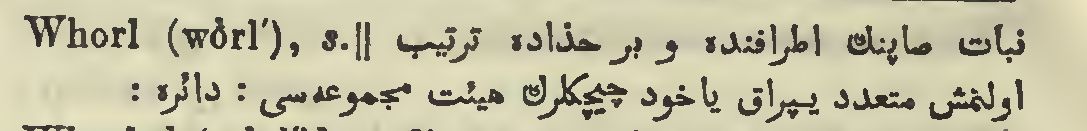 Whorl (wôrl′), s.‖ نبات صاپنڭ اطرافنده و بر حذاده ترتیب
اولنمش متعدد یپراق یاخود چیچکلرڭ هیئت مجموعه‌سی : دائره :